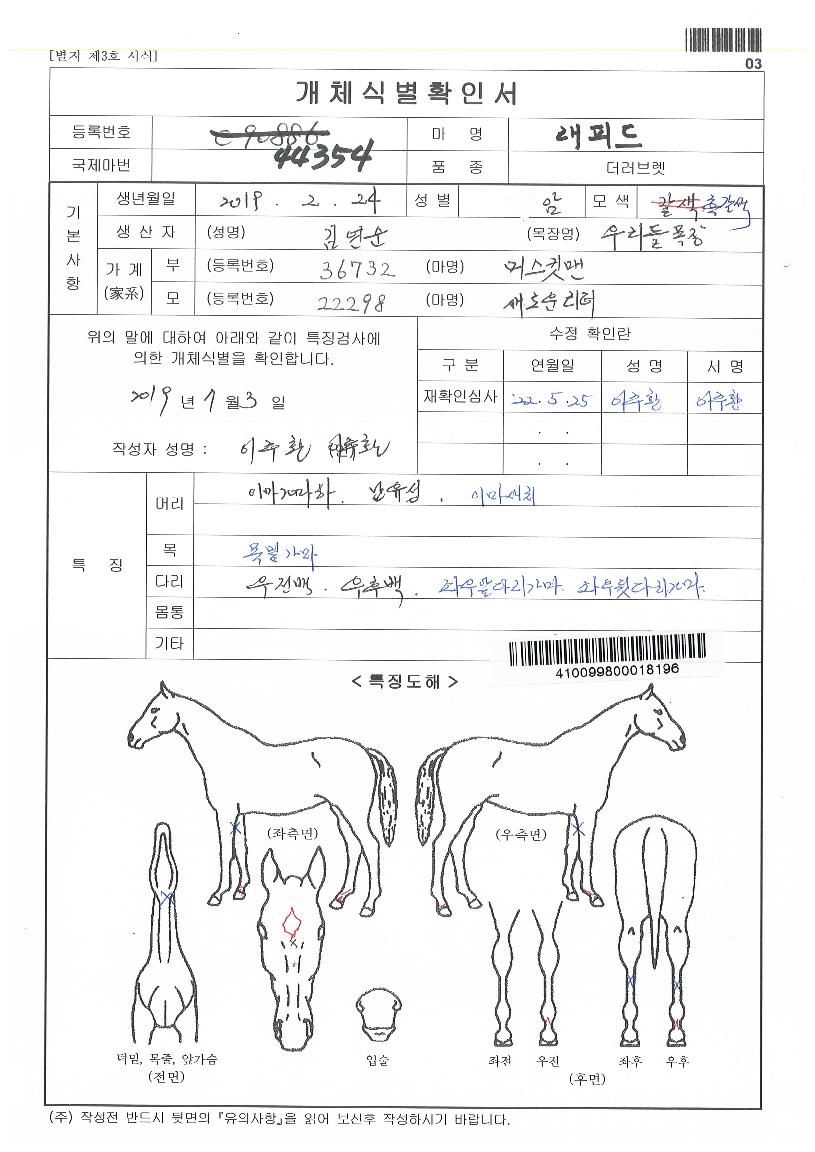 [별지 제3호 서식]
03
개체식별확인서
등록번호 c90886 마 명 래피드
국제마번 44354 품 종 더러브렛
기본사항
생년월일 2019 . 2 . 24 성 별 암 모 색 갈색 흑갈색
생 산 자 (성명) 김연순 (목장명) 우리들목장
가 계 (家系) 부 (등록번호) 36732 (마명) 머스킷맨
모 (등록번호) 22298 (마명) 새로운리더
위의 말에 대하여 아래와 같이 특징검사에
의한 개체식별을 확인합니다.
2019 년 7 월 3 일
작성자 성명 : 이주환
수정 확인란
구 분 연월일 성 명 서 명
재확인심사 '22. 5. 25 이주환 이주환
. .
. .
특 징
머리 이마가마하. 난유성. 이마새치
목 목밑가마
다리 우전백. 우후백. 좌우앞다리가마. 좌우뒷다리가마.
몸통
기타
410099800018196
< 특징도해 >
(좌측면) (우측면)
턱밑, 목줄, 앞가슴
(전면)
입술
좌전 우전 좌후 우후
(후면)
(주) 작성전 반드시 뒷면의 『유의사항』을 읽어 보신후 작성하시기 바랍니다.